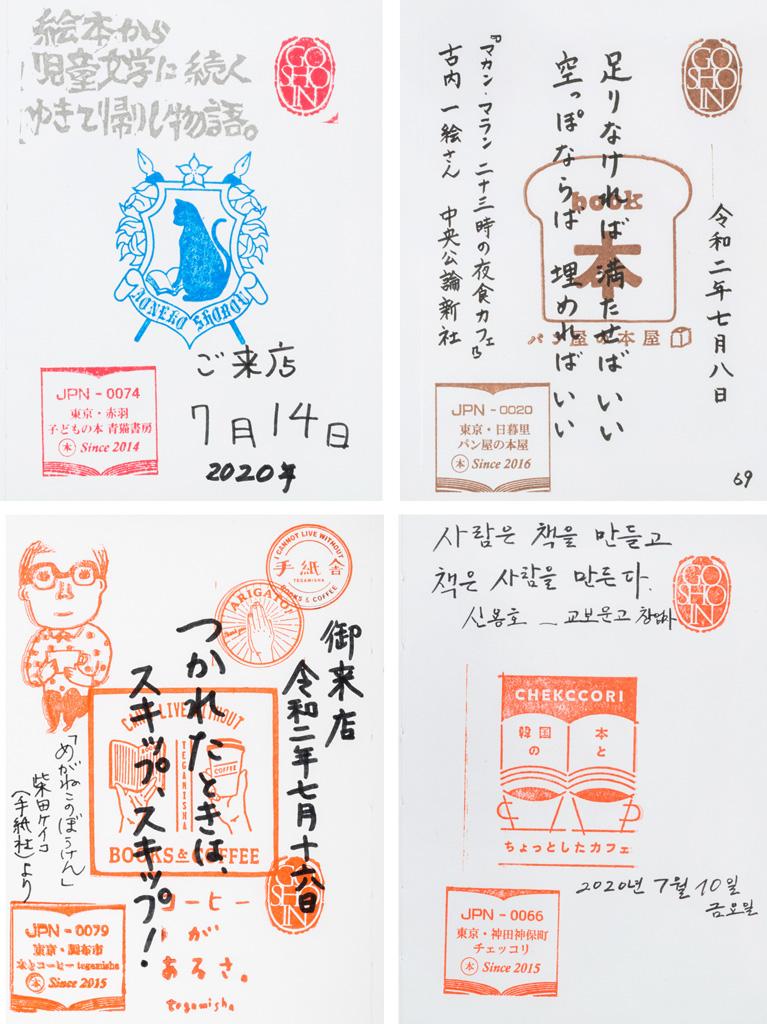 絵本から
児童文学に続く
ゆきて帰りし物語。
GO
SHO
IN
AONEKO SHOBOU
ご来店
7月14日
2020年
JPN-0074
東京・赤羽
子どもの本 青猫書房
本 Since 2014
GO
SHO
IN
令和二年七月八日
足りなければ 満たせば いい
空っぽならば 埋めれば いい
『マカン・マラン 二十三時の夜食カフェ』
古内 一絵さん 中央公論新社
book
本
パン屋の本屋
JPN-0020
東京・日暮里
パン屋の本屋
本 Since 2016
69
I CANNOT LIVE WITHOUT
手紙舎
TEGAMISHA
BOOKS & COFFEE
ARIGATO!
Thank you
御来店
令和二年七月十六日
つかれたときは、
スキップ、スキップ!
「めがねこのぼうけん」
柴田ケイコ
(手紙社)より
CAN'T LIVE WITHOUT
BOOK
TEGAMISHA
COFFEE
BOOKS & COFFEE
GO
SHO
IN
コーヒー
が
あるさ。
tegamisha
JPN-0079
東京・調布市
本とコーヒー tegamisha
本 Since 2015
사람은 책을 만들고
책은 사람을 만든다.
신용호 _ 교보문고 창업자
GO
SHO
IN
CHEKCCORI
韓国の 本と
ちょっとしたカフェ
2020년 7월 10일
금요일
JPN-0066
東京・神田神保町
チェッコリ
本 Since 2015